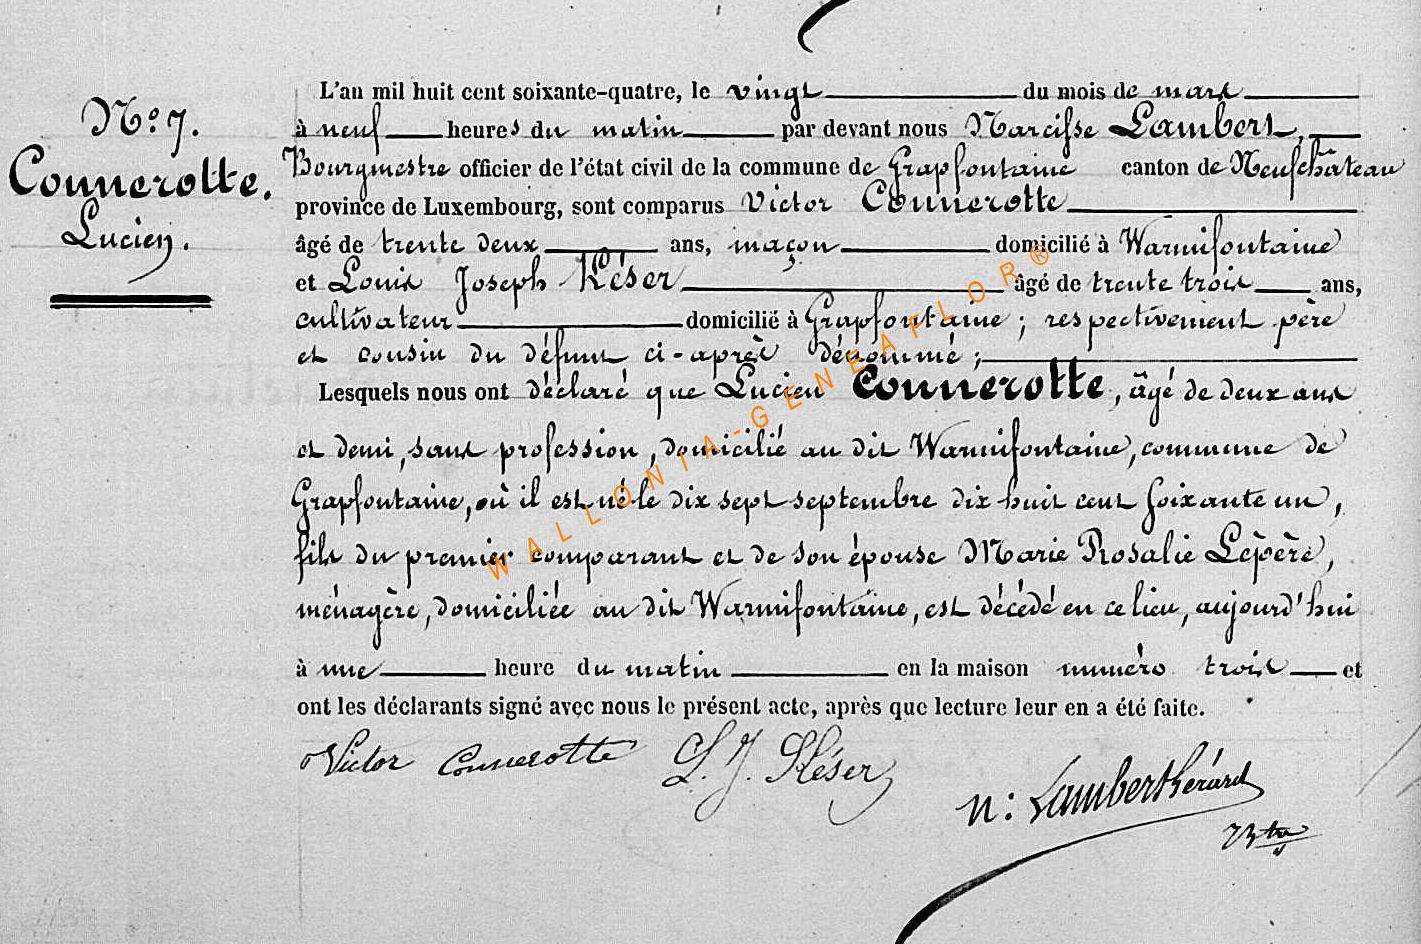 N° 7.
Connerotte.
Lucien.
L'an mil huit cent soixante-quatre, le vingt du mois de mars
à neuf heures du matin par devant nous Narcisse Lambert,
Bourgmestre officier de l'état civil de la commune de Grapfontaine canton de Neufchâteau
province de Luxembourg, sont comparus Victor Connerotte
âgé de trente deux ans, maçon domicilié à Warmifontaine
et Louis Joseph Késer âgé de trente trois ans,
cultivateur domicilié à Grapfontaine ; respectivement père
et cousin du défunt ci-après dénommé ;
Lesquels nous ont déclaré que Lucien Connerotte, âgé de deux ans
et demi, sans profession, domicilié au dit Warmifontaine, commune de
Grapfontaine, où il est né le dix sept septembre dix huit cent soixante un,
fils du premier comparant et de son épouse Marie Rosalie Lepère,
ménagère, domiciliée au dit Warmifontaine, est décédé en ce lieu, aujourd'hui
à une heure du matin en la maison numéro trois et
ont les déclarants signé avec nous le présent acte, après que lecture leur en a été faite.
Victor Connerotte L. J. Késer
N: Lambert Gérard
WALLONIA-GENEAFLOR®